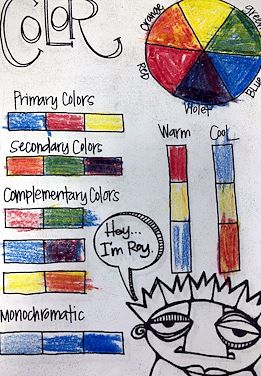 COLOR
Orange
Green
Red
Blue
Violet
Primary Colors
Secondary Colors
Warm
Cool
Complementary Colors
Hey...
I'm Roy.
Monochromatic